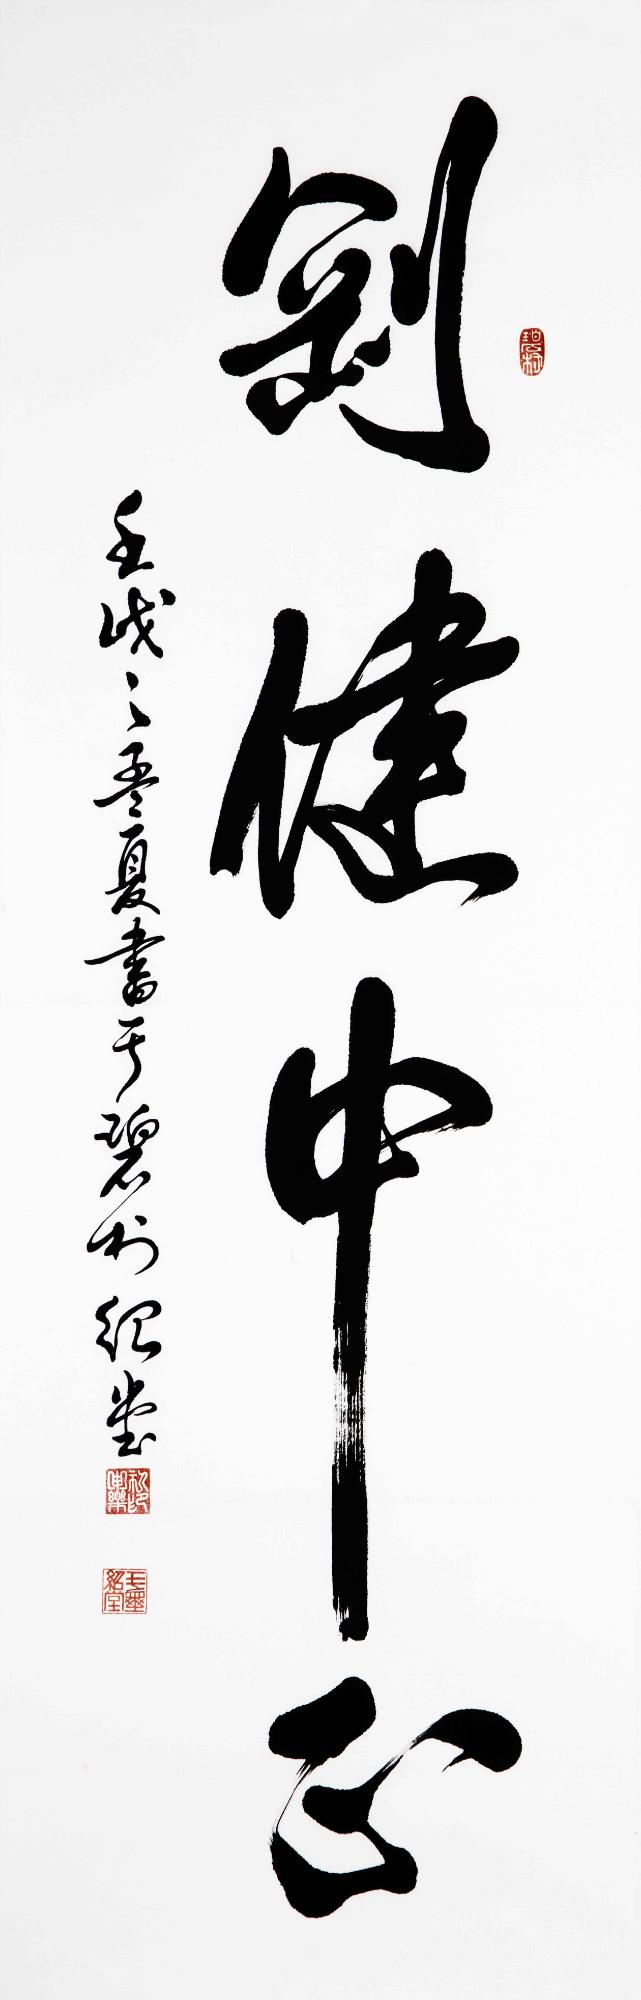 剛健中正
壬戌之孟夏書于碧村紹堂